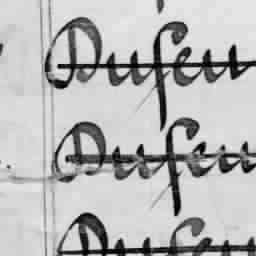 Dusen
Dusen
Dusen